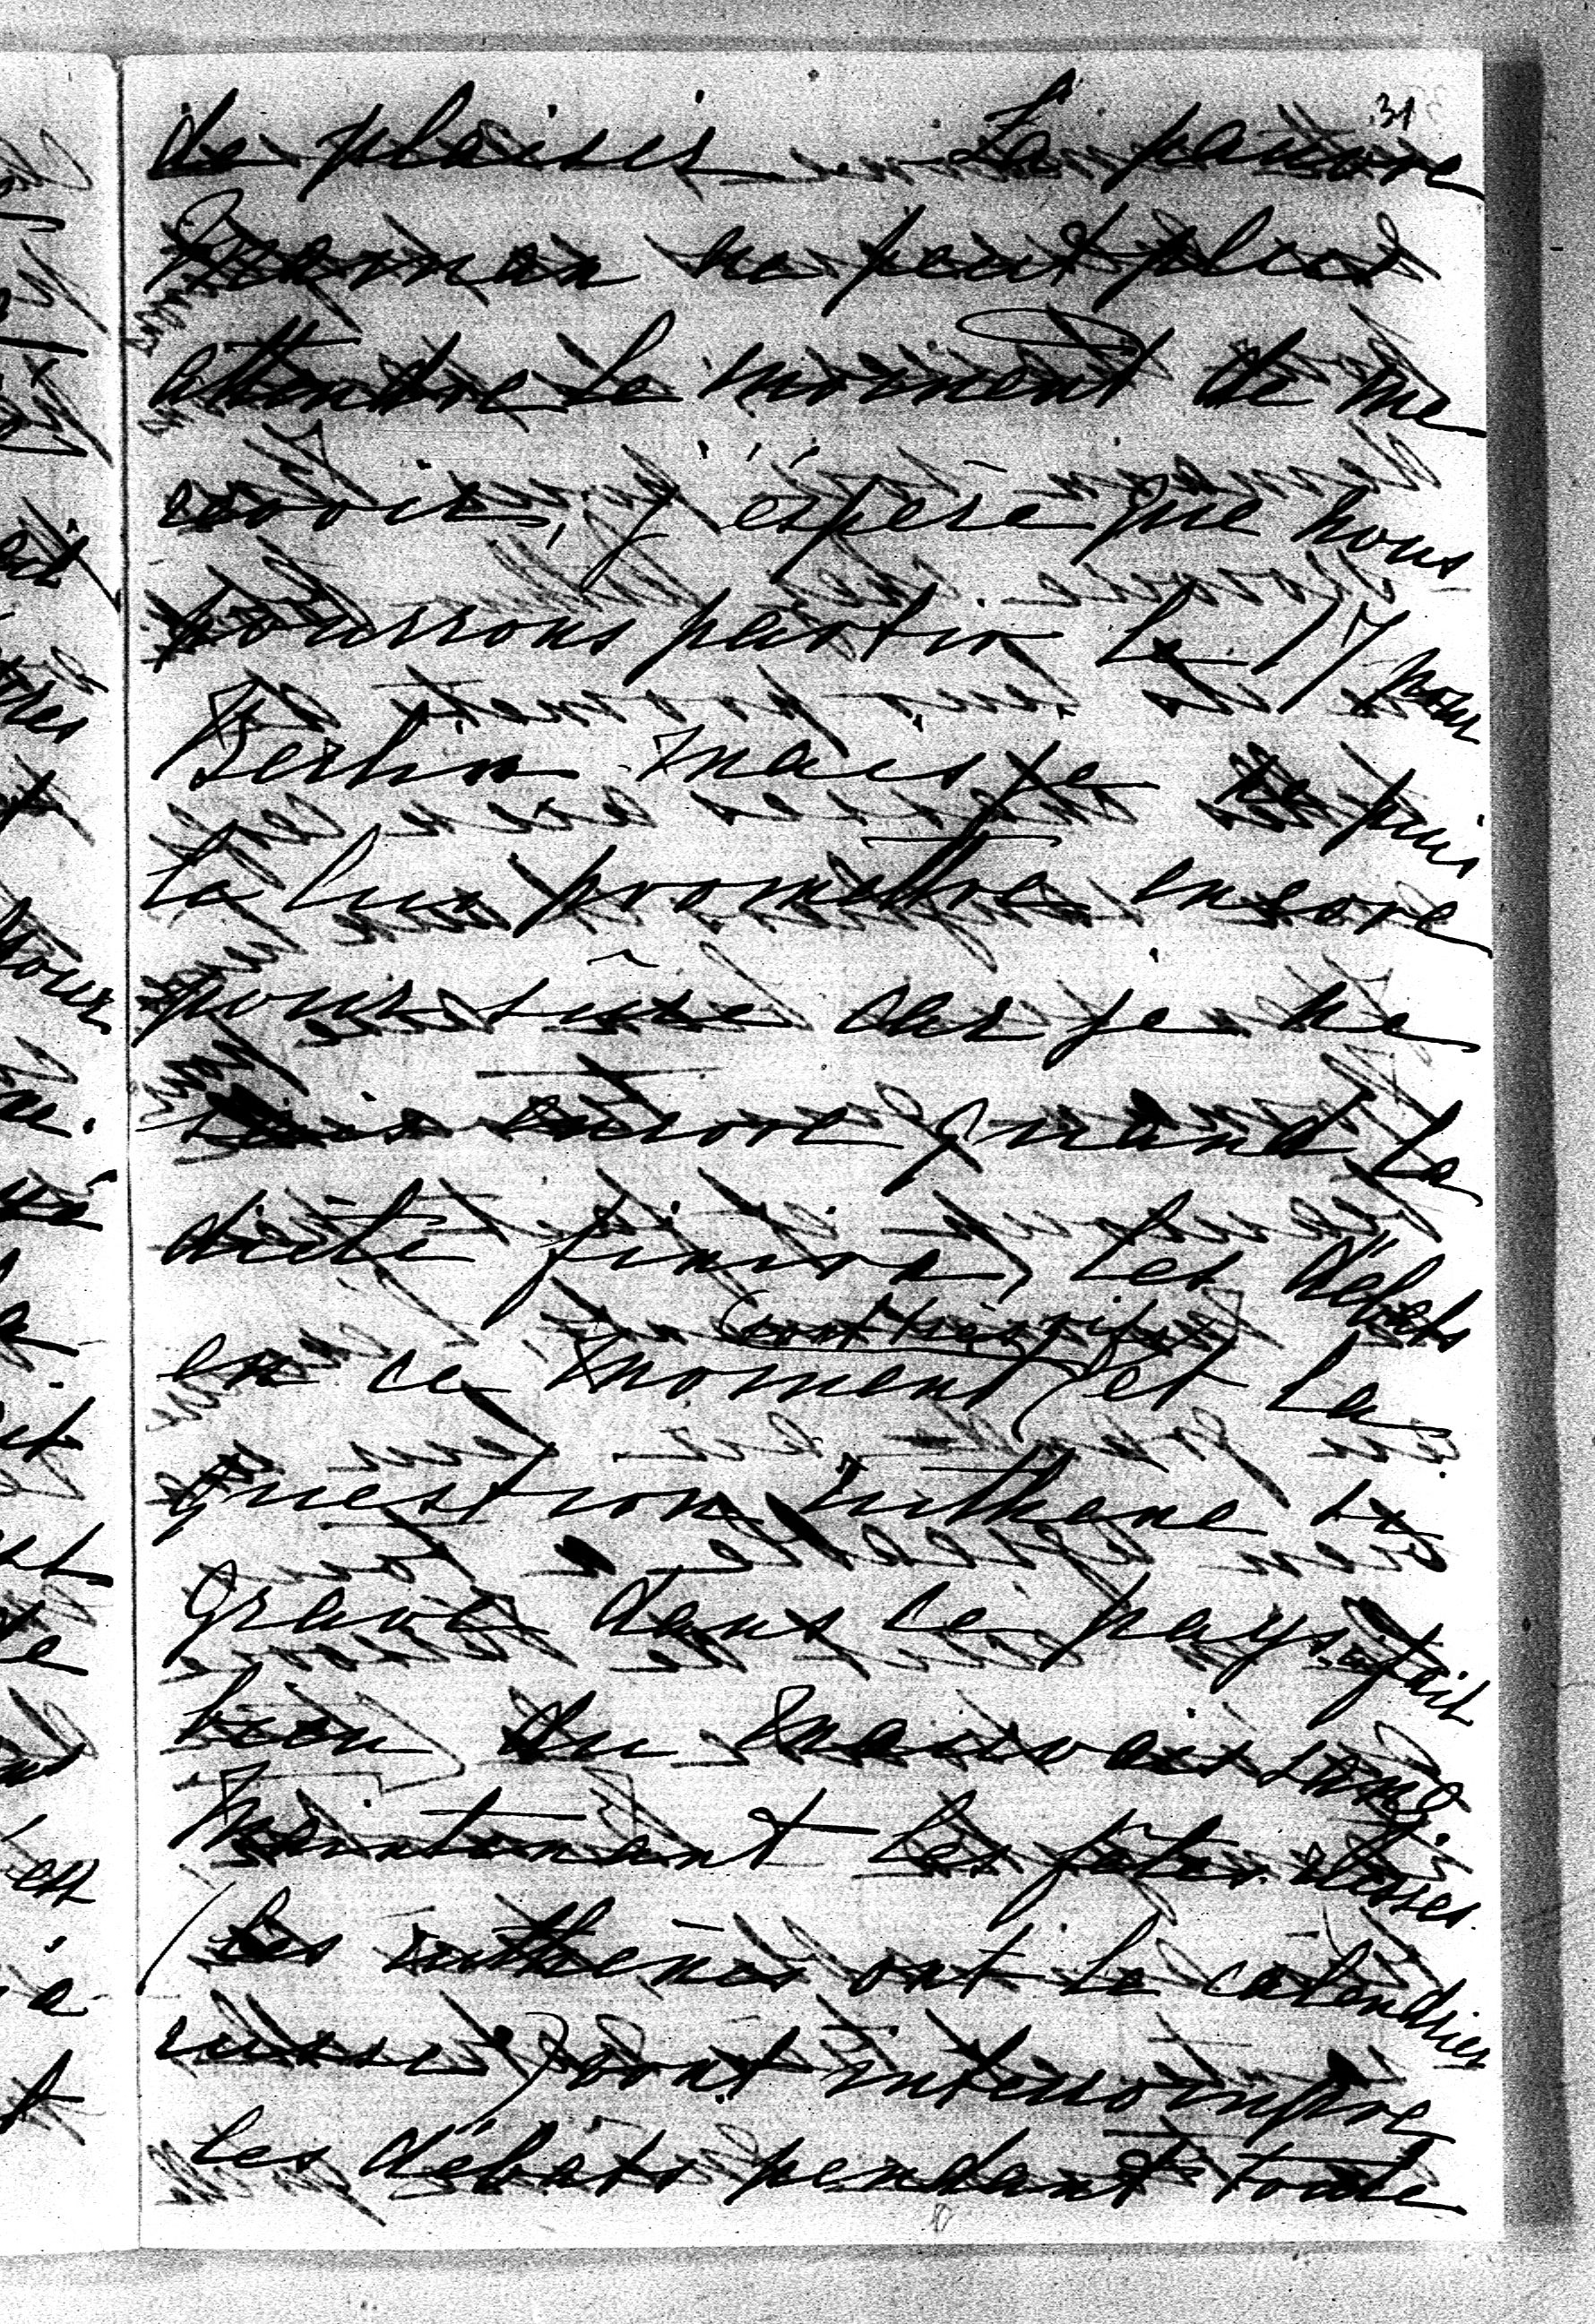 31
de plaisir. La pauvre
Maman ne peut plus
attendre le moment de me
revoir, j'éspère que nous
pourrons partir le 17 pour
Berlin mais je ne puis
le lui promettre encore
pour sûre car je ne
sais encore quand la
diète finira, les débats
(sont très vifs)
en ce moment et la
question ruthene si
grave dans ce pays, fait
bien du mauvais sang
Maintenant les fêtes russes.
(les ruthenes ont le calendrier
russe) vont interrompre
les débats pendant toute